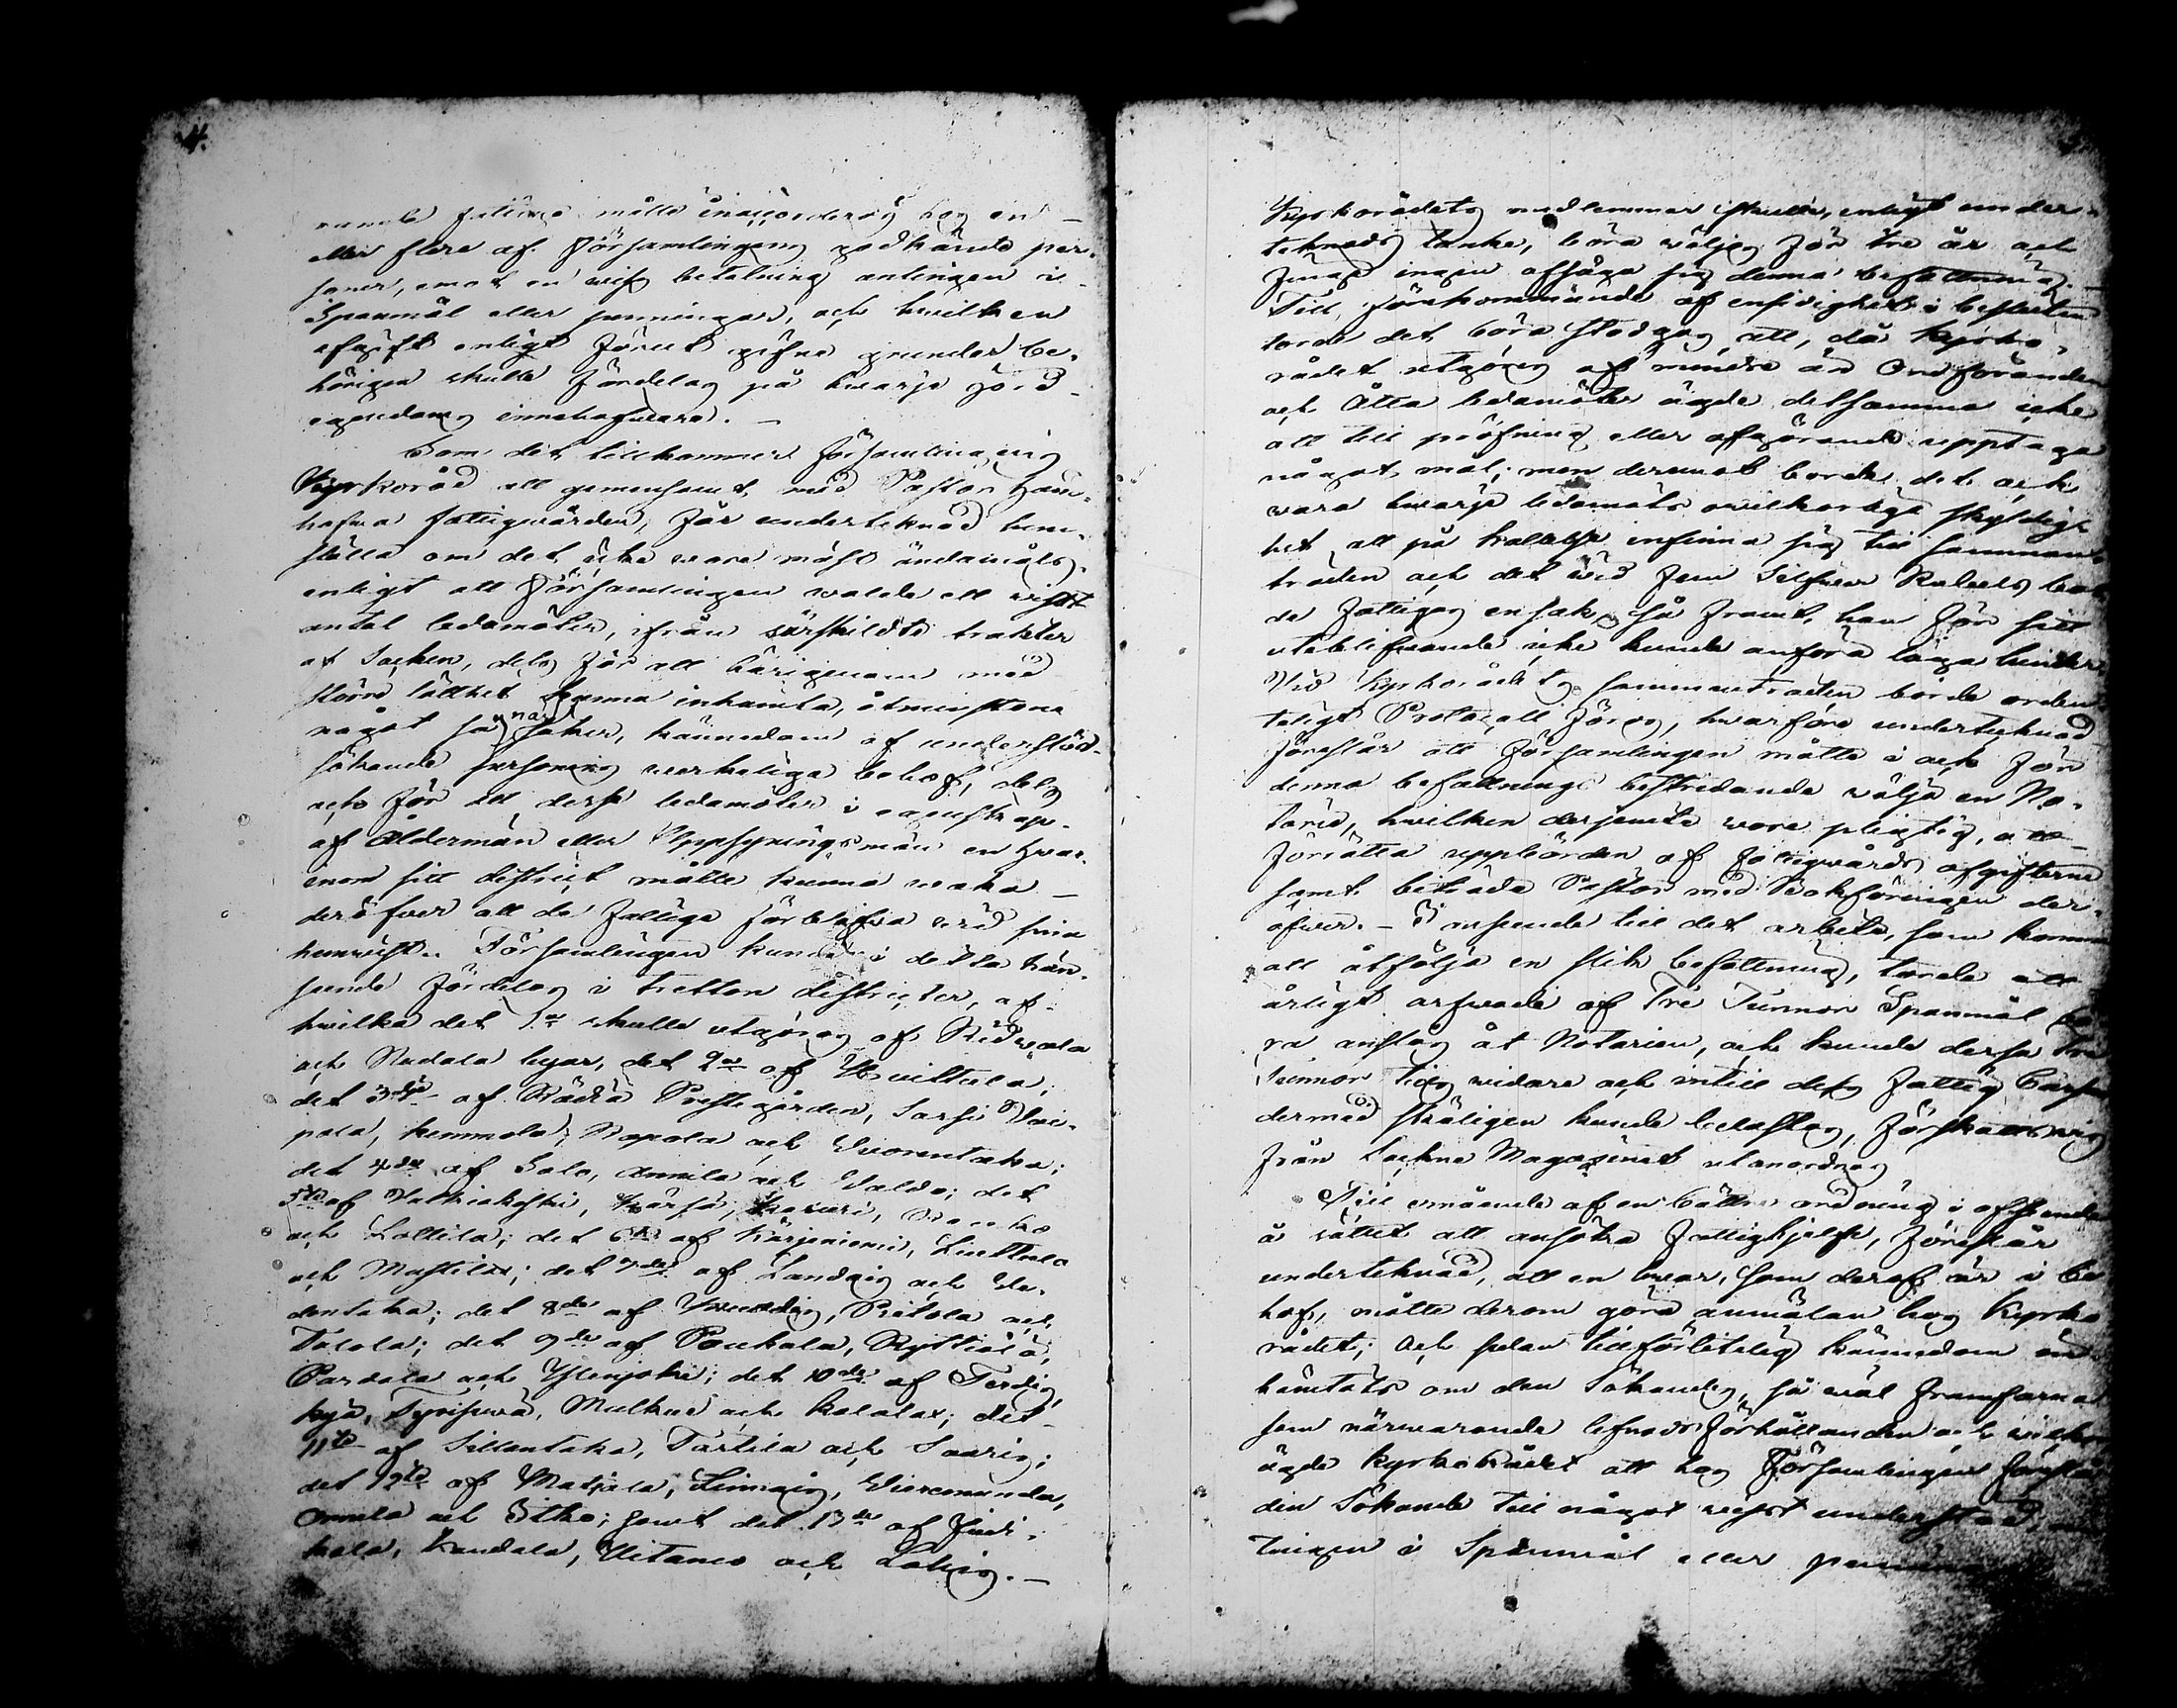 4.
fattiga måtte inaccorderas hos en
eller flere af Församlingens godkände per-
soner, emot en wiss betalning antingen i
Spanmål eller penningar, och hwilken
afgift enligt förut gifne grunder be-
hörigen skulle fördelas på hwarje jord
egendoms innehafware. —
Som det tillkommer Församlingens
Kyrkoråd att gemensamt med Pastor hand-
hafwa fattigwården, får undertecknad hem-
ställa om det icke wore mäst ändamåls-
enligt att Församlingen walde ett wisst
antal ledamöter, ifrån särskildte trakter
af Socken, dels för att härigenom med
större lätthet kunna inhämta, åtminstone
något så när säker, kännedom af understöd-
sökande personers werkeliga behof, dels
och för att desse ledamöter i egenskap
af Åldermän eller Uppsyningsmän en hwar
inom sitt district måtte kunna waka
deröfwer att de fattige förblifwa wid sina
hemwist. Församlingen kunde i detta hän-
seende fördelas i tretton districter, af
hwilka det 1a skulle utgöras af Ridwala
och Nadala byar, det 2a af Huittula,
det 3dje af Rädiä Prestegården, Sarsi Woi-
pala, kemmola, Rapola och Wuorentaka;
det 4de af Salo, Annila och Waldo; det
5te af Walkiakoski, Kärjä,
och Lottila; det 6te af Kärjeniemi,
och Mustila; det 7de af Landais och We-
dentaka; det 8de af Ritola och
Tolola; det 9de af Paukala, Ryttiälä,
Pardala och Ylenjoki; det 10de af
kyä, Tyrisewä, Mulkus och Kalalax; det
11te af Sillantaka, Tarttila och Saaris;
det 12te af Matjala,
Annila och Itko; samt det 13de af Judi-
kala, Kandala, Uitamo och Lokis. —
Kyrkorådets medlemmar skulle, enligt under-
teknads tanke, böra wäljas för tre år och
finge ingen afsäga sig denna befattning. —
Till förekommande af ensidighet i besluten
torde det böra stadgas att, då kyrko-
rådet utgöres af mindre än Ordföranden
och åtta ledamöter ägde detsamma icke
att till pröfning eller afgörande upptaga
något mål; men deremot borde det och
wara hwarje ledamots owilkorliga skyldig-
het att på kallelse infinna sig till samman-
träden och det wid fem Silfwer Rubels bot
de fattigas ensak, så framt han för sitt
uteblifwande icke kunde anföra laga hinder.
Wid Kyrkorådets sammanträden borde orden-
teligt Protocoll föras, hwarföre undertecknad
föreslår att Församlingen måtte i och för
denna befattnings bestridande wälja en No-
tarie, hwilken derjemte wore pligtig, att
förrätta uppbörden af fattigwårds afgifterne
samt biträda Pastor med Bokföringen der-
öfwer. — I anseende till det arbete, som komme
att åtfölja en slik befattning, torde ett
årligt arfwode af Tre Tunnor Spanmål bö-
ra anslås åt Notarien, och kunde dessa tre
Tunnor tills widare och intill dess fattig Cassan
dermed skäligen kunde belastas, förskottswis
från Sockne Magasinet utanordnas
Till ernående af en bättre ordning i afseende
å sättet att ansöka fattighjelp, föreslår
undertecknad, att en hwar, som deraf är i be
hof, måtte derom göra anmälan hos Kyrko
rådet; och sedan tillförlitelig kännedom in-
hämtats om den Sökandes, så wäl framfarna
som närwarande lefnads förhållanden och wilkor
ägde kyrkorådet att hos Församlingen föreslå
den Sökande till något wisst understöd, an
tingen i Spanmål eller